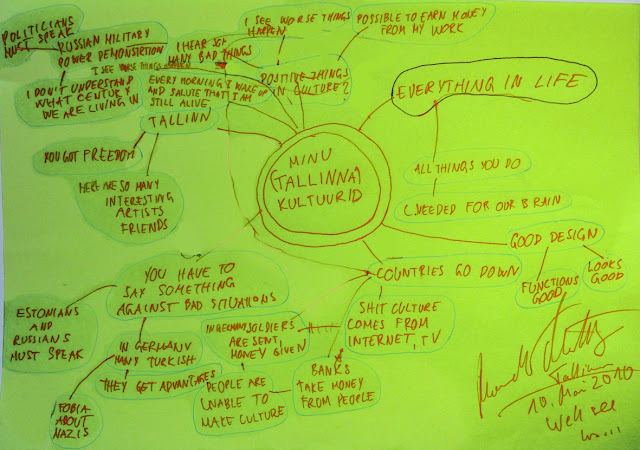 POLITICIANS
MUST SPEAK
RUSSIAN MILITARY
POWER DEMONSTRATION
I SEE WORSE THINGS HAPPEN
I DON'T UNDERSTAND
WHAT CENTURY
WE ARE LIVING IN
I HEAR SO
MANY BAD THINGS
I SEE WORSE THINGS
HAPPEN
POSSIBLE TO EARN MONEY
FROM MY WORK
POSITIVE THINGS
IN CULTURE?
EVERY MORNING I WAKE UP
AND SALUTE THAT I AM
STILL ALIVE
TALLINN
YOU GOT FREEDOM
HERE ARE SO MANY
INTERESTING
ARTISTS
FRIENDS
EVERYTHING IN LIFE
ALL THINGS YOU DO
NEEDED FOR OUR BRAIN
MINU
(TALLINNA)
KULTUURID
GOOD DESIGN
FUNCTIONS
GOOD
LOOKS
GOOD
COUNTRIES GO DOWN
SHIT CULTURE
COMES FROM
INTERNET, TV
YOU HAVE TO
SAY SOMETHING
AGAINST BAD SITUATIONS
ESTONIANS
AND
RUSSIANS
MUST SPEAK
IN GERMANY
MANY TURKISH
THEY GET ADVANTAGES
FOBIA
ABOUT
NAZIS
IN GERMANY SOLDIERS
ARE SENT,
MONEY GIVEN
PEOPLE ARE
UNABLE TO
MAKE CULTURE
BANKS
TAKE MONEY
FROM PEOPLE
Tallinn
10. Mai 2010